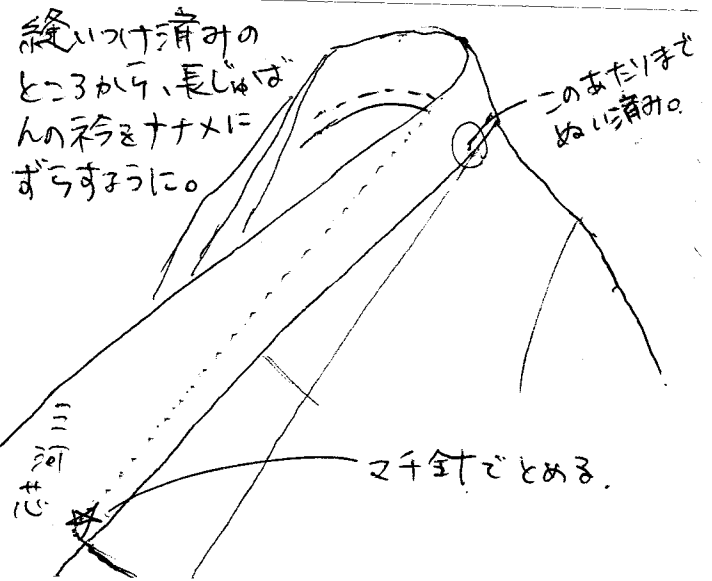 縫いつけ済みの
ところから、長じゅば
んの衿をナナメに
ずらすように。
このあたりまで
ぬい済み。
三河芯
マチ針でとめる.